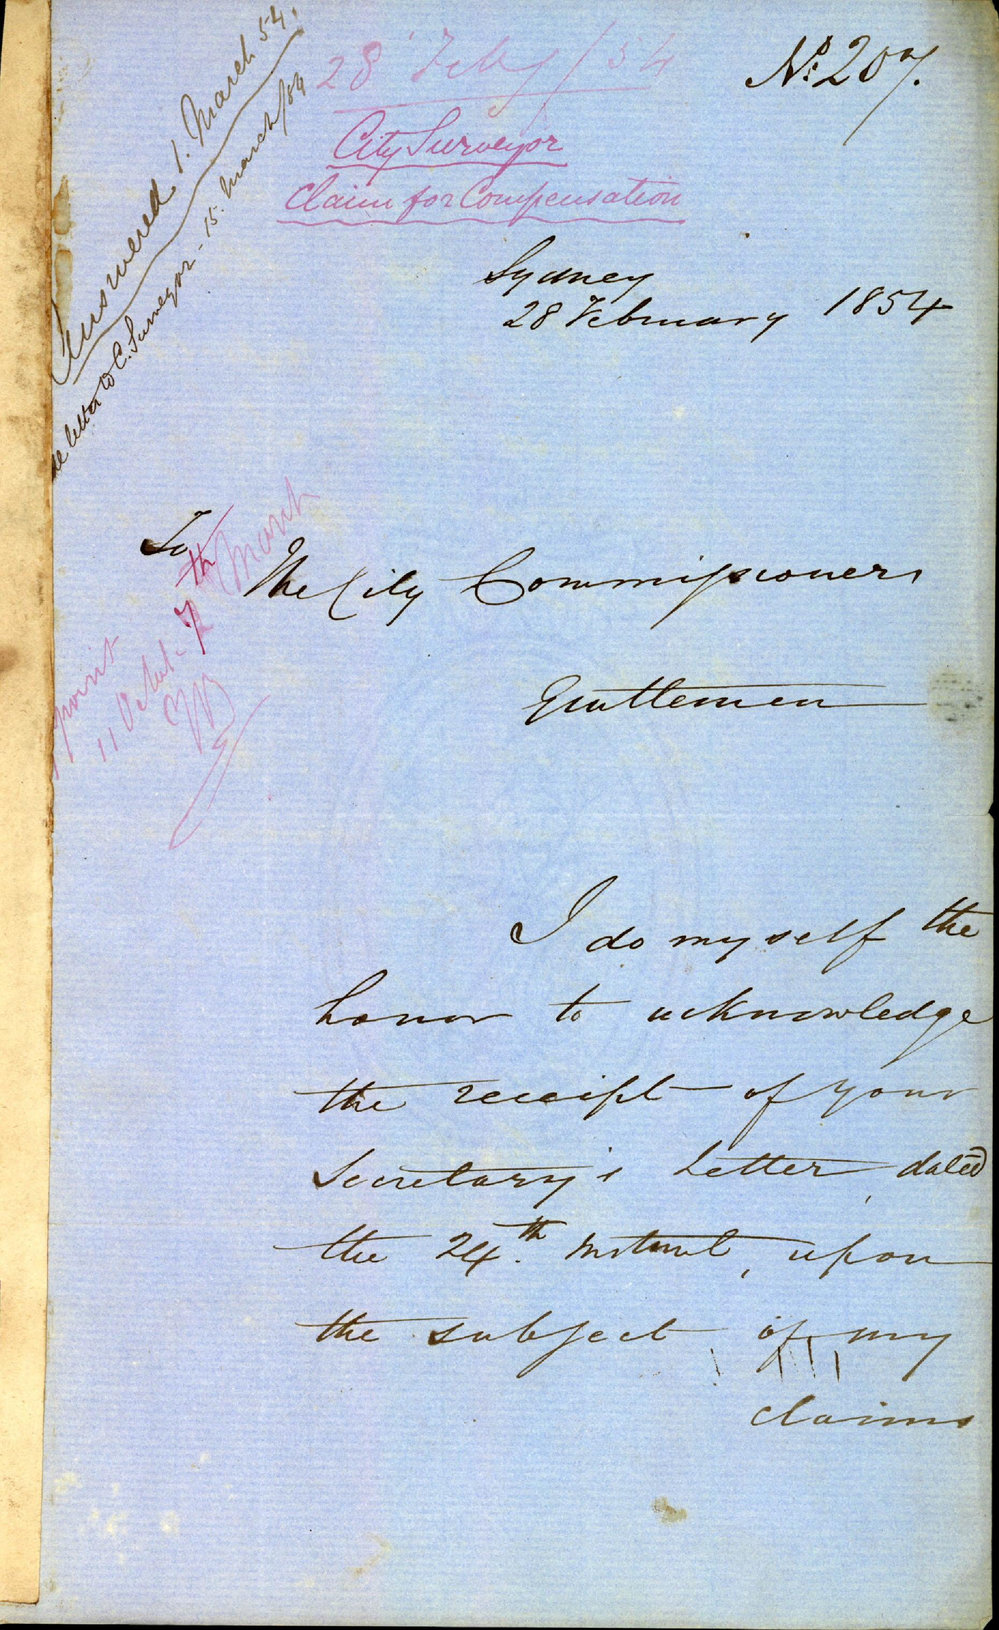 Answered 1. March 54.
letter to C. Surveyor - 15. March/54
28 Feby/54
No. 207.
City Surveyor
Claim for Compensation
Sydney
28 February 1854
To
The City Commissioners
Gentlemen
point
11 O'clock 7th March
I do myself the
honor to acknowledge
the receipt of your
Secretary's Letter, dated
the 24th. Instant, upon
the subject of my
claims